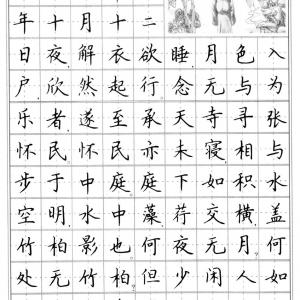 年十月十二
日夜,解衣欲睡,月色入
户,欣然起行。念无与为
乐者,遂至承天寺寻张
怀民。怀民亦未寝,相与
步于中庭。庭下如积水
空明,水中藻荇交横,盖
竹柏影也。何夜无月?何
处无竹柏?但少闲人如